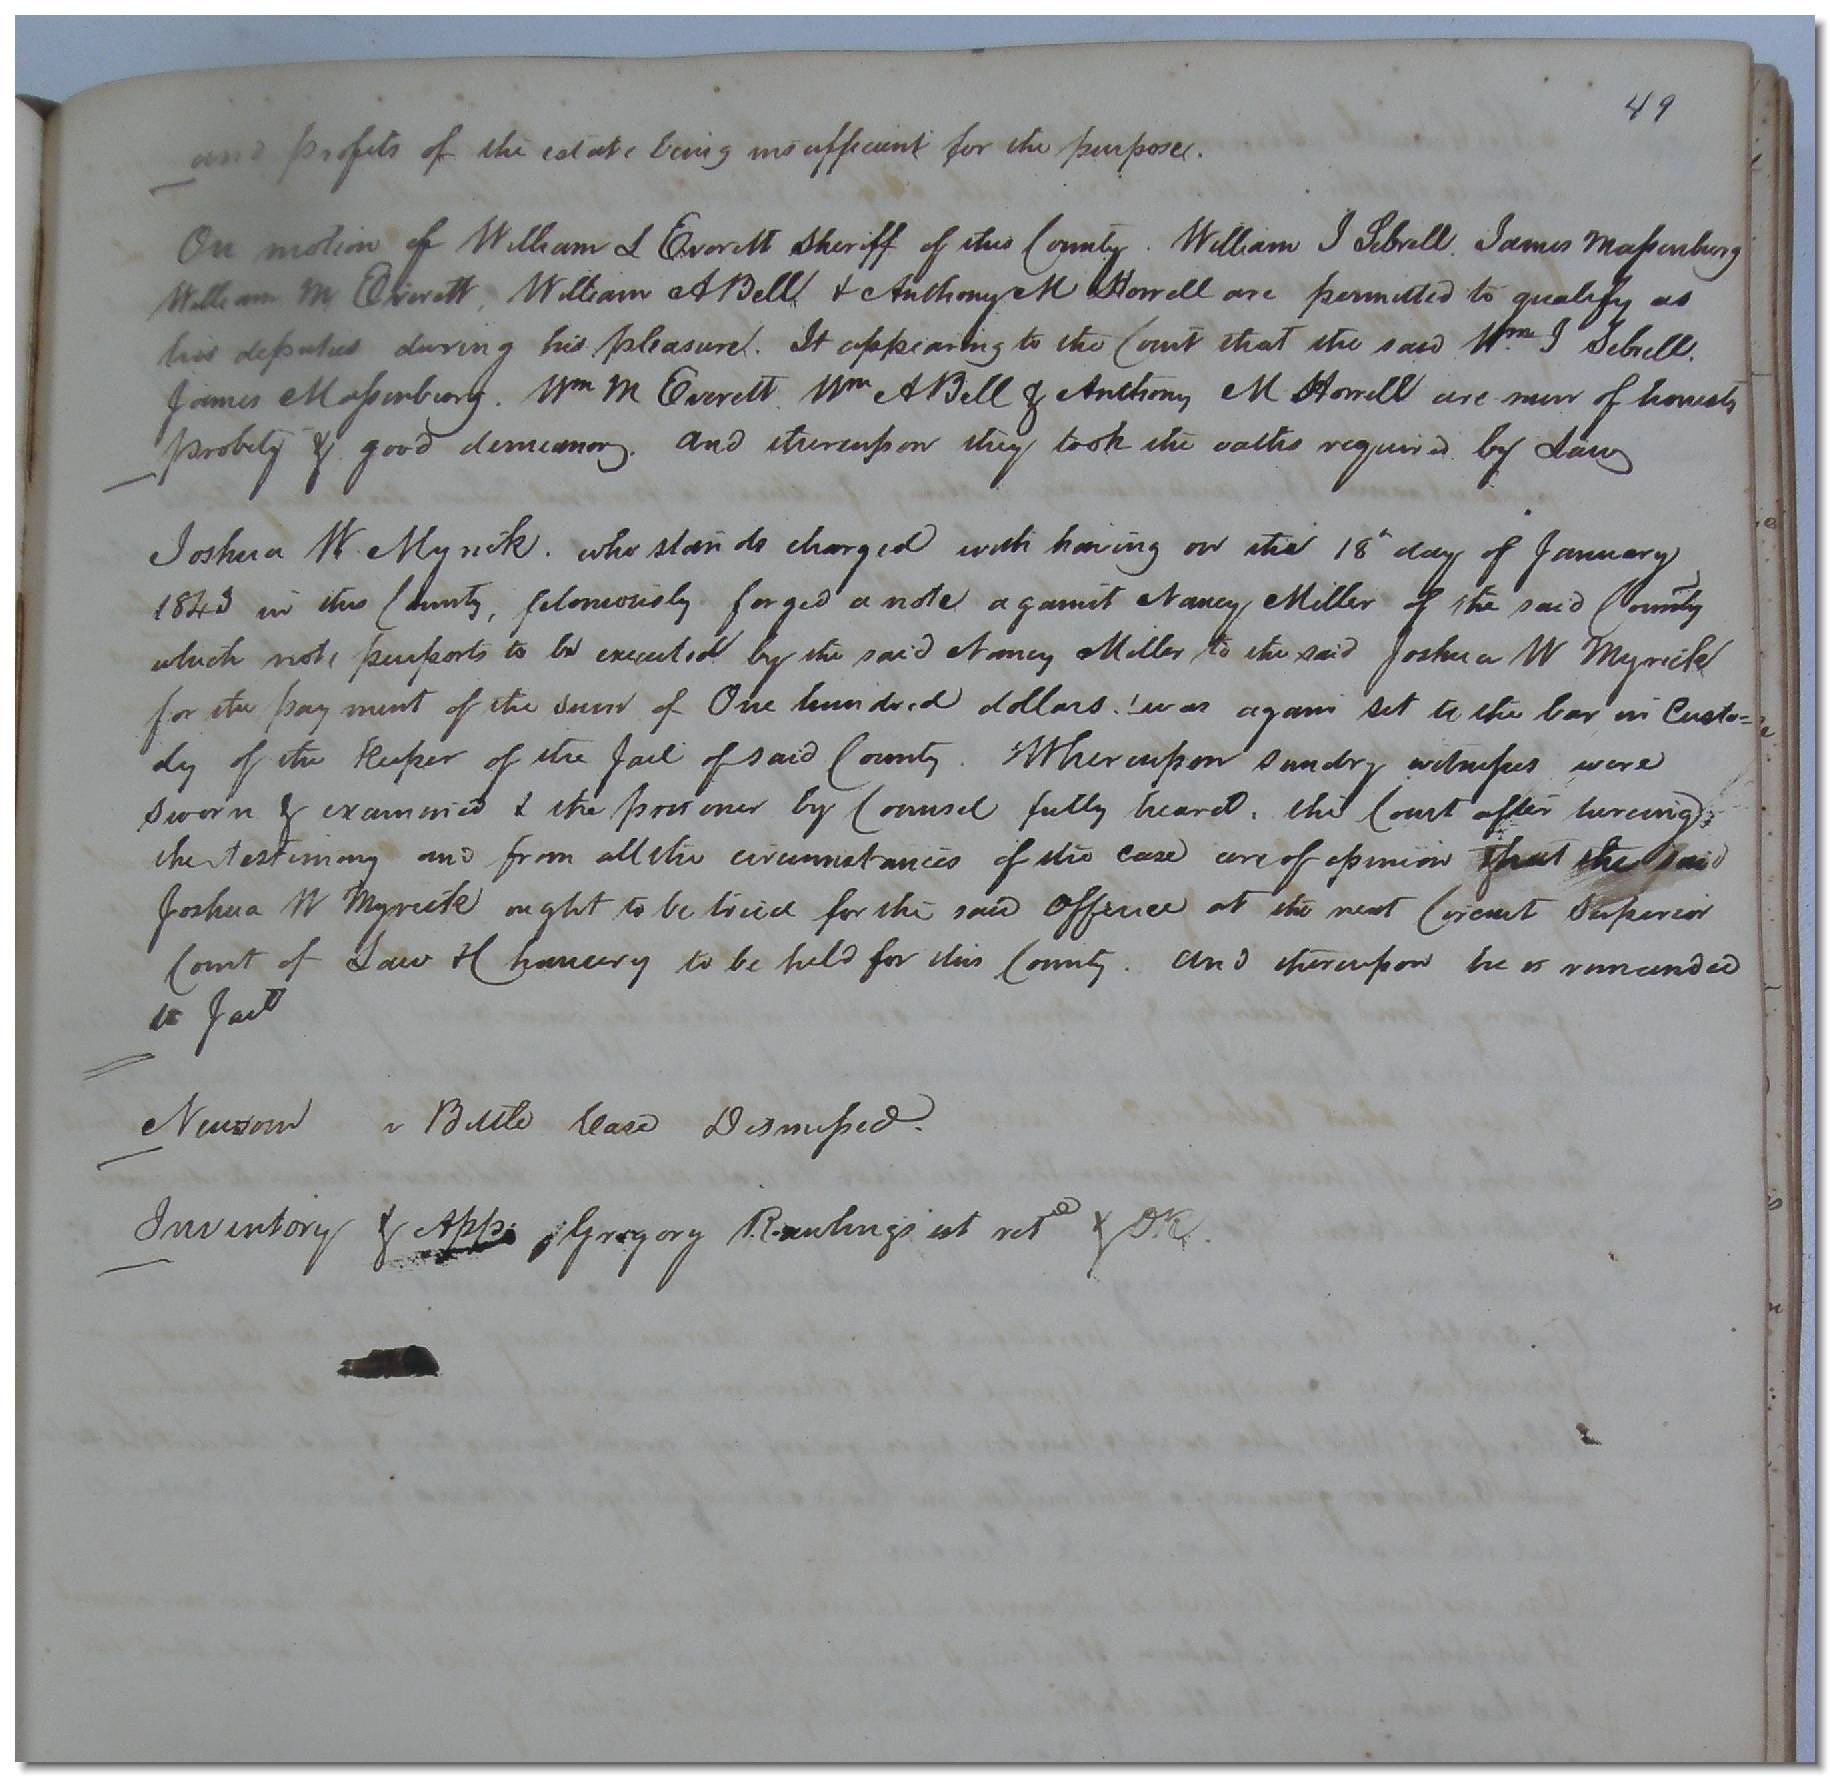 49
and profits of the estate being insufficient for the purpose.
On motion of William L Everett Sheriff of this County. William J Sebrell. James Massenburg
William M Everett, William A Bell & Anthony M Howell are permitted to qualify as
his deputies during his pleasure. It appearing to the Court that the said Wm J Sebrell.
James Massenburg. Wm M Everett Wm A Bell & Anthony M Howell are men of honesty
probity & good demeanor. and thereupon they took the oaths required by Law
Joshua W Myrick. who stands charged with having on the 18th day of January
1843 in this County, feloniously forged a note against Nancy Miller of the said County
which note purports to be executed by the said Nancy Miller to the said Joshua W Myrick
for the payment of the sum of One hundred dollars. was again set to the bar in Custo=
dy of the Keeper of the Jail of said County. Whereupon sundry witnesses were
sworn & examined & the prisoner by Counsel fully heard. the Court after hereing
the testimony and from all the circumstances of the case are of opinion that the said
Joshua W Myrick ought to be tried for the said Offence at the next Circuit Superior
Court of Law & Chancery to be held for this County. and thereupon he is remanded
to Jail
Newsom v Bittle Case Dismissed.
Inventory & App. Gregory Rawlings est retd & OR.